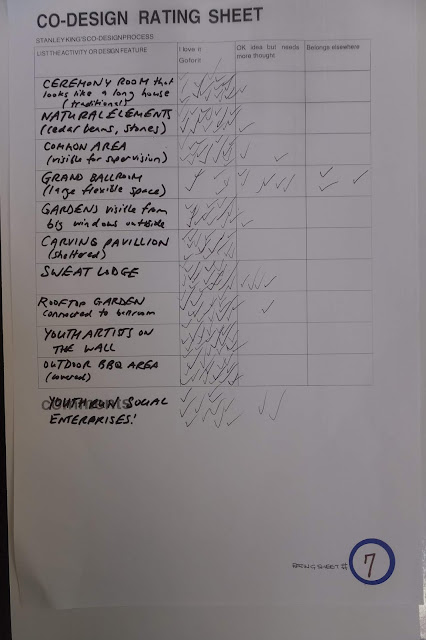 CO-DESIGN RATING SHEET
STANLEY KING'S CO-DESIGN PROCESS
LIST THE ACTIVITY OR DESIGN FEATURE
I love it
Go for it
OK idea but needs
more thought
Belongs elsewhere
CEREMONY ROOM that
looks like a long house
(traditional)
NATURAL ELEMENTS
(cedar beams, stones)
COMMON AREA
(visible for supervision)
GRAND BALLROOM
(large flexible space)
GARDENS visible from
big windows outside
CARVING PAVILLION
(sheltered)
SWEAT LODGE
ROOFTOP GARDEN
connected to
YOUTH ARTISTS ON
THE WALL
OUTDOOR BBQ AREA
(covered)
comments
YOUTH RUN SOCIAL
ENTERPRISES!
RATING SHEET # 7